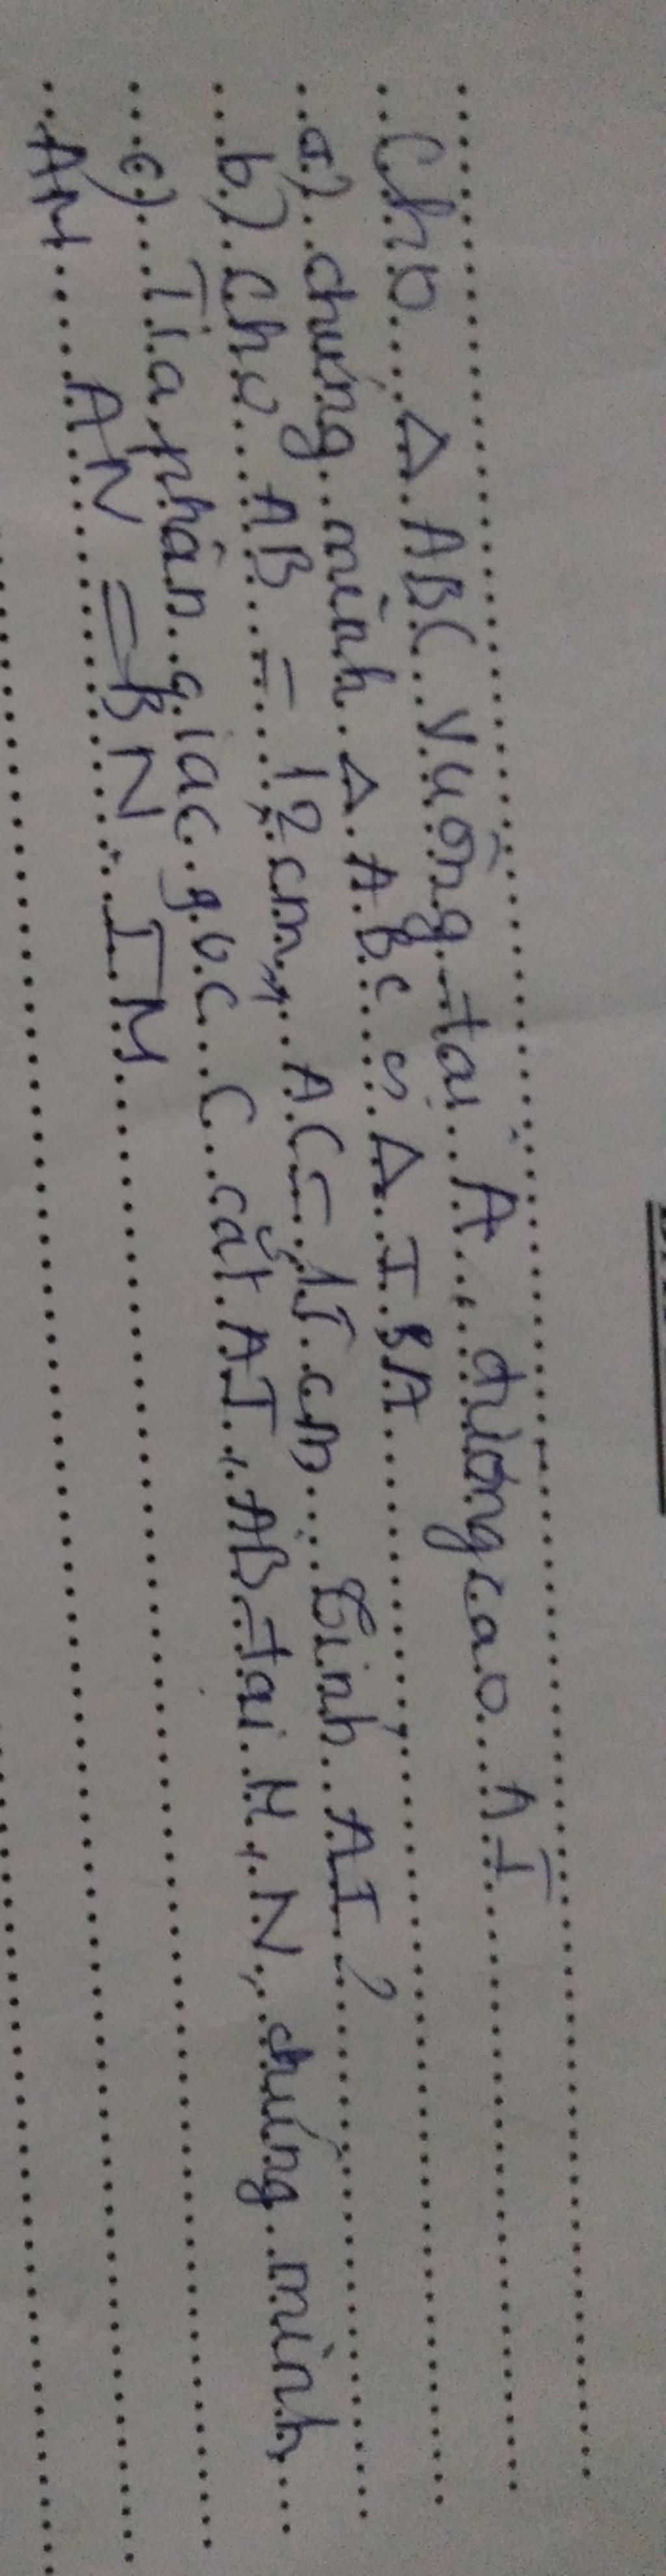 Cho Δ ABC vuông tại A, đường cao AI
a) chứng minh Δ ABC ∽ Δ IBA
b) Cho AB = 12 cm, AC = 15 cm Tính AI?
c) Tia phân giác góc C cắt AI, AB tại M, N, chứng minh
AM AN = BN. IM